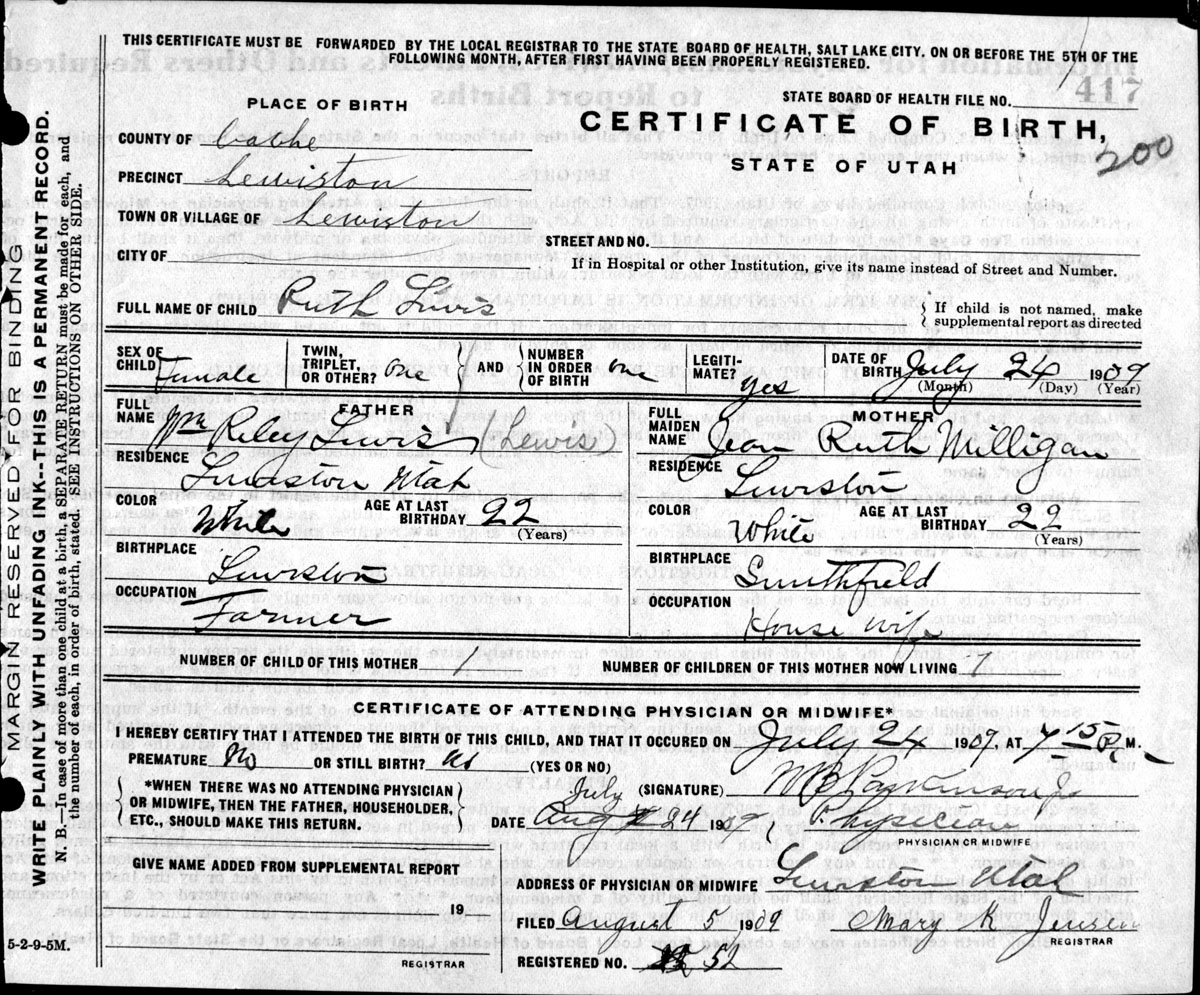 THIS CERTIFICATE MUST BE FORWARDED BY THE LOCAL REGISTRAR TO THE STATE BOARD OF HEALTH, SALT LAKE CITY, ON OR BEFORE THE 5TH OF THE
FOLLOWING MONTH, AFTER FIRST HAVING BEEN PROPERLY REGISTERED.
417
PLACE OF BIRTH
STATE BOARD OF HEALTH FILE NO.
CERTIFICATE OF BIRTH,
200
STATE OF UTAH
COUNTY OF Cabhe
PRECINCT Lewiston
TOWN OR VILLAGE OF Lewiston
STREET AND NO.
CITY OF
If in Hospital or other Institution, give its name instead of Street and Number.
FULL NAME OF CHILD Ruth Lewis
If child is not named, make
supplemental report as directed
SEX OF CHILD Female
TWIN, TRIPLET, OR OTHER? one
AND
NUMBER IN ORDER OF BIRTH one
LEGITI-MATE? yes
DATE OF BIRTH July 24 1909
(Month) (Day) (Year)
FATHER
FULL NAME Wm Riley Lewis (Lewis)
RESIDENCE Lewiston Utah
COLOR White
AGE AT LAST BIRTHDAY 22
(Years)
BIRTHPLACE Lewiston
OCCUPATION Farmer
MOTHER
FULL MAIDEN NAME Jean Ruth Milligan
RESIDENCE Lewiston
COLOR White
AGE AT LAST BIRTHDAY 22
(Years)
BIRTHPLACE Smithfield
OCCUPATION House wife
NUMBER OF CHILD OF THIS MOTHER 1
NUMBER OF CHILDREN OF THIS MOTHER NOW LIVING 1
CERTIFICATE OF ATTENDING PHYSICIAN OR MIDWIFE*
I HEREBY CERTIFY THAT I ATTENDED THE BIRTH OF THIS CHILD, AND THAT IT OCCURED ON July 24 1909, AT 7 15 P. M.
PREMATURE No OR STILL BIRTH? no (YES OR NO)
*WHEN THERE WAS NO ATTENDING PHYSICIAN
OR MIDWIFE, THEN THE FATHER, HOUSEHOLDER,
ETC., SHOULD MAKE THIS RETURN.
(SIGNATURE) W B Parkinson Jr
July
DATE Aug 24 1909
Physician
PHYSICIAN OR MIDWIFE
GIVE NAME ADDED FROM SUPPLEMENTAL REPORT
19
REGISTRAR
ADDRESS OF PHYSICIAN OR MIDWIFE Lewiston Utah
FILED August 5 1909 Mary K Jensen
REGISTRAR
REGISTERED NO. 52
5-2-9-5M.
MARGIN RESERVED FOR BINDING
WRITE PLAINLY WITH UNFADING INK--THIS IS A PERMANENT RECORD.
N. B.—In case of more than one child at a birth, a SEPARATE RETURN must be made for each, and
the number of each, in order of birth, stated. SEE INSTRUCTIONS ON OTHER SIDE.